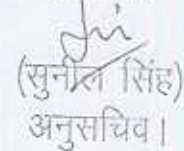 (सुनील सिंह)
अनुसचिव।